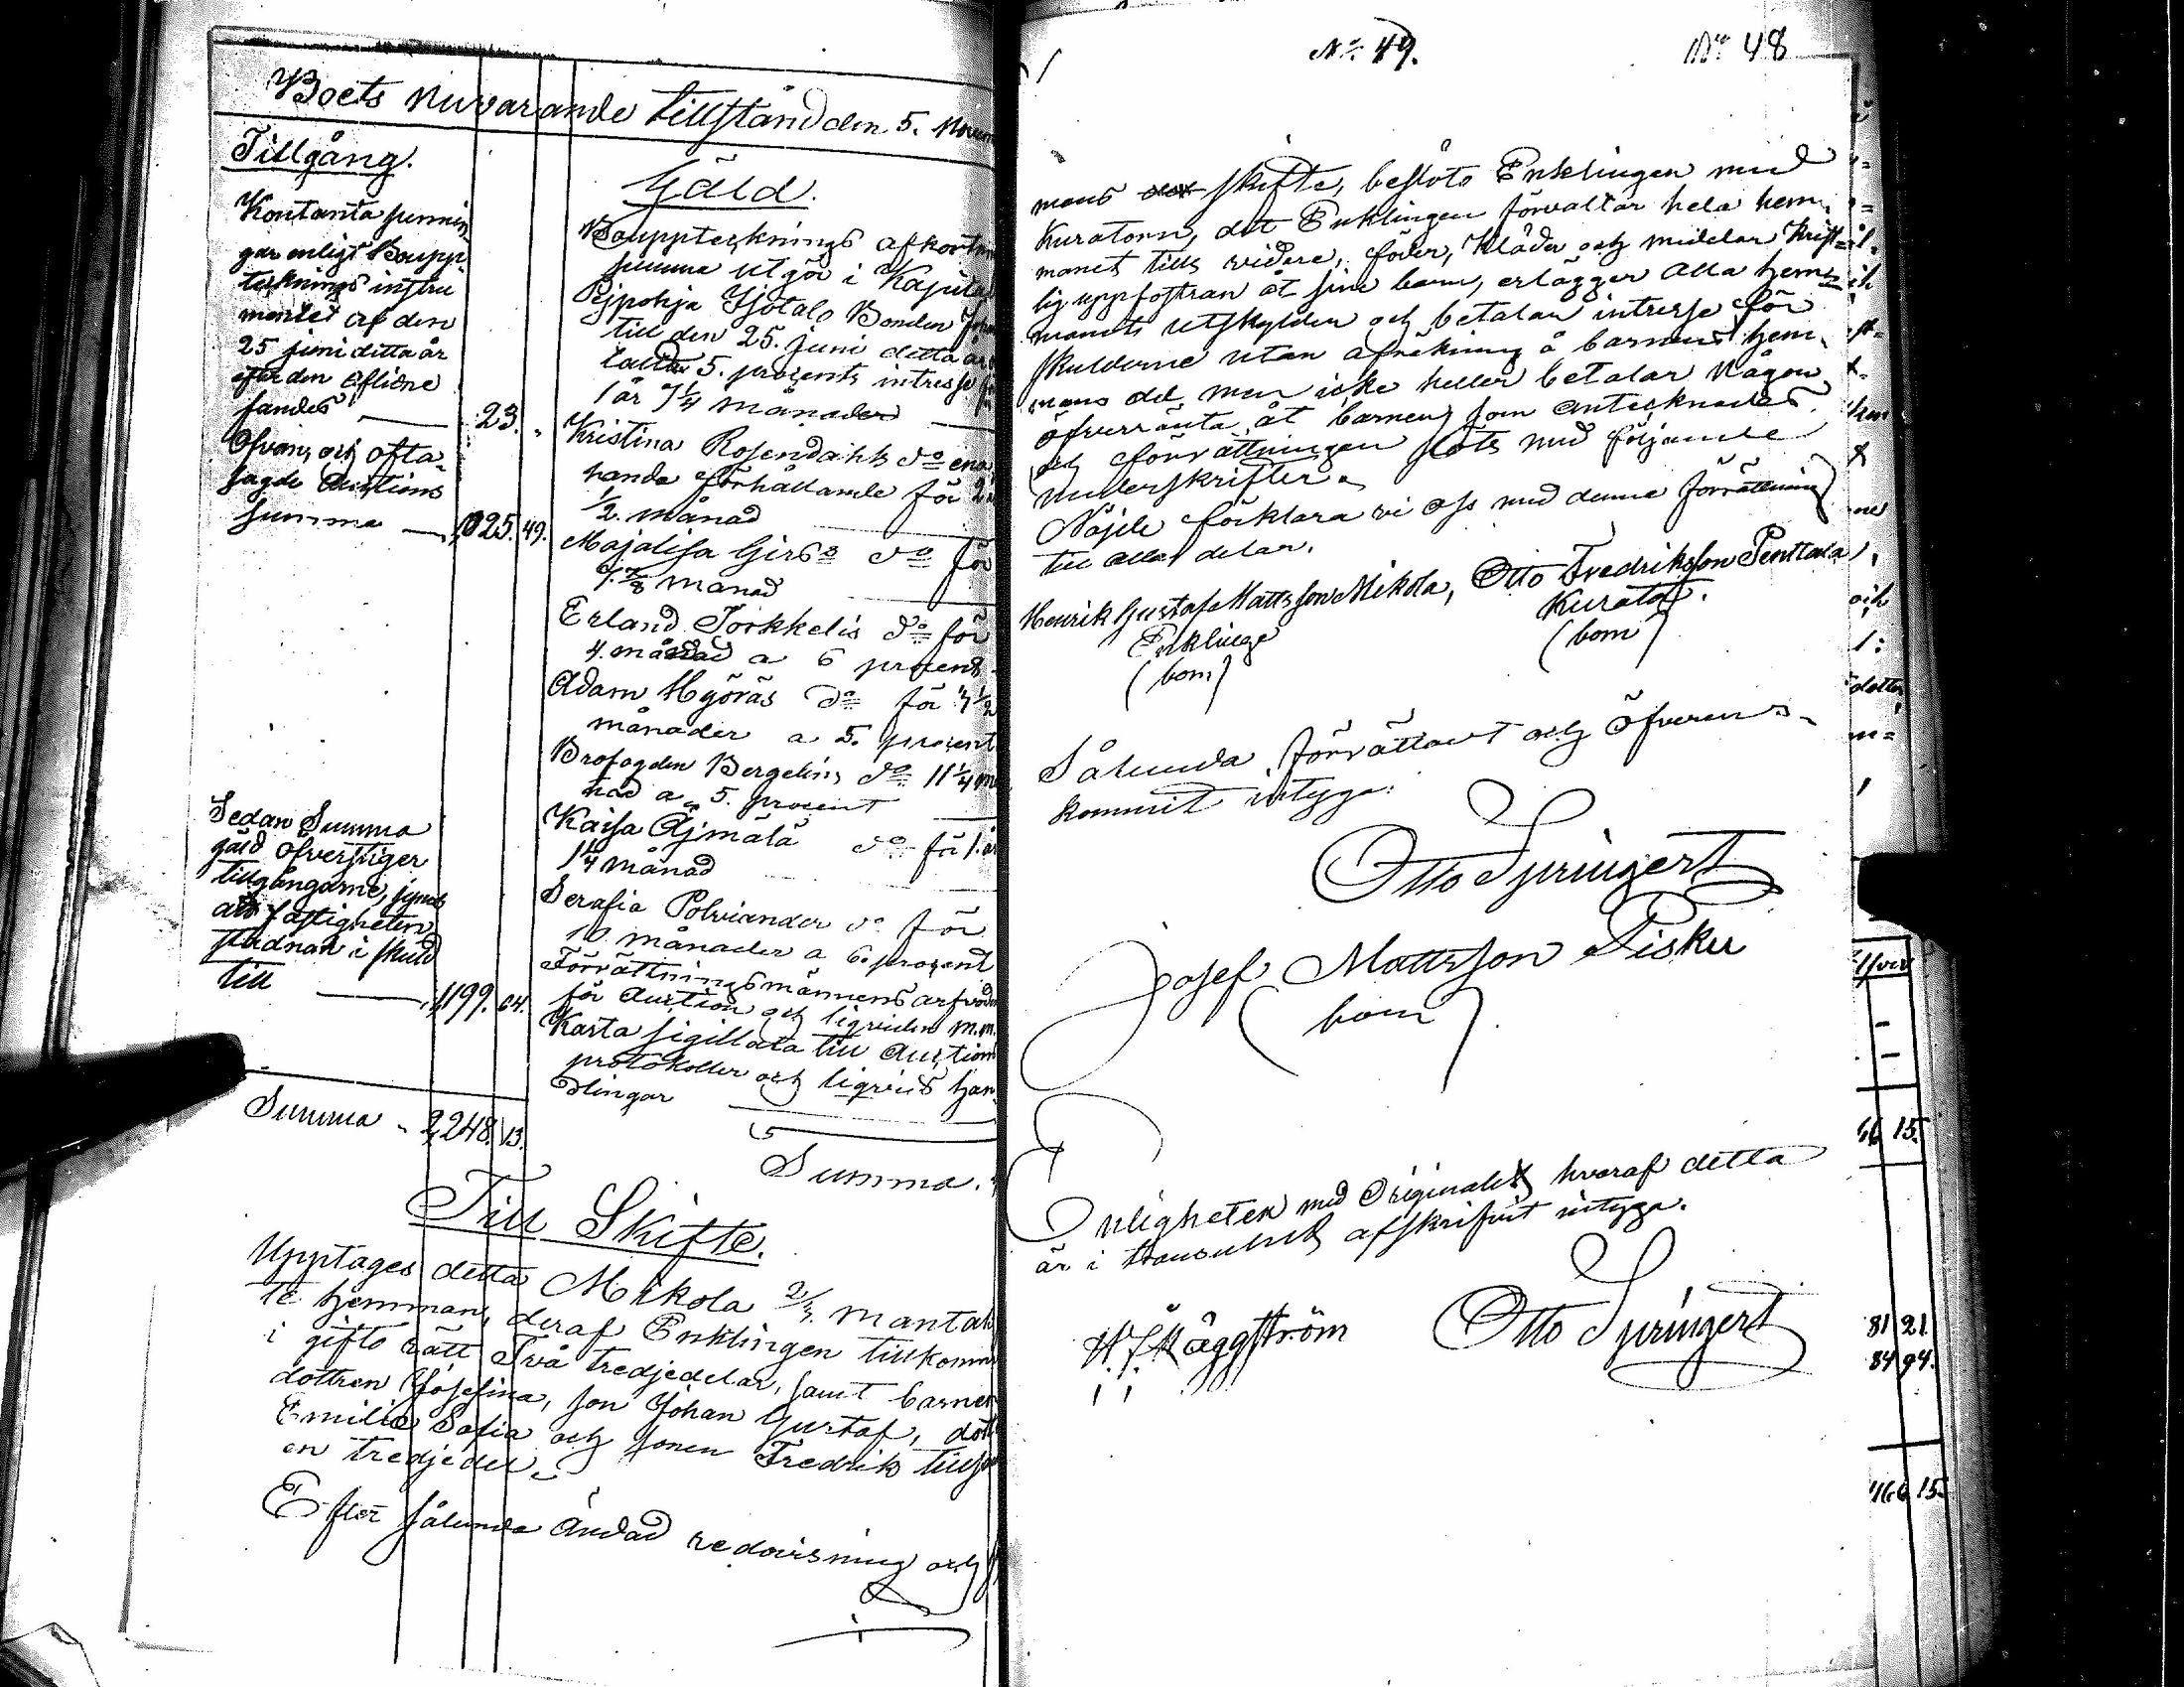 Boets nuvarande tillstånd den 5. Novem
Tillgång.
Kontanta pennin
gar enligt Boupp
tecknings instru
mentet af den
25 juni detta år
efter den aflidne
fandes — 23. "
Ofvan och ofta
sagde Auctions
summa — 1,025. 49.
Sedan Summa
gäld öfverstiger
tillgångarne, synes
att fastigheten
stadnar i skuld
till — 1,199. 64.
Summa - 2,248. 13.
Gäld.
Boupptecknings afkortn
summa utgör i Kapital
Pejpohja Sjötals Bonden Joh
till den 25. juni detta år
5. procents intresse för
1 år 7 1/4 månader —
Kristina Rosendahls d:o ena
handa förhållande för 2 å
1/2. månad
Majalisa Girs d:o för
7. 7/8 månad
Erland Torkkelis d:o för
4. månad a 6 procent
Adam Hyöräs d:o för 7 1/2
månader a 5. procent
Brofogden Bergelins d:o 11 1/4 må
nad a 5. procent
Kaisa Äjmälä d:o för 1. år
1 1/4 månad
Serafia Polviander d:o för
10 månader a 6. procent
Förrättningsmännens arfvode
för Auction och liqviden m.m.
Karta sigillata till Auctions
protokoller och liqvids han
dlingar
Summa.
Till Skifte.
Upptages detta Mikola 2/3 mantals
te hemman, deraf Enklingen tillkomm
i gifto rätt Två tredjedelar, samt barnen
dottren Josefina, son Johan Gustaf, dott
Emilia Sofia och sonen Fredrik tills
en tredjedel.
Efter sålunda ändad redovisning och
No. 49.
No 48
mans skifte, beslöts Enklingen med
Kuratorn, det Enklingen förvaltar hela hem
manet tills vidare, föder, kläder och meddelar krist=
lig uppfostran åt sine barn, erlägger alla hem=
manets utskylder och betalar intresse för
skulderne utan afräkning å barnens hem
mans del, men icke heller betalar någon
öfverränta åt barnen, som antecknades
och förrättningen slöts med följande
underskrifter.
Nöjde förklara vi oss med denna förrättning
till alla delar.
Henrik Gustaf Mattsson Mikola, Otto Fredriksson Penttala,
Enklinge
Kurator.
(bom)
(bom)
Sålunda förrättadt och öfverens-
kommit intyga:
Otto Springert
Josef Mattsson Pisku
(bom)
Enligheten med Originalet hvaraf detta
är i transumt afskrifvit intyga.
Häggström
Otto Springert
46 15.
81 21
84 94.
466 15.